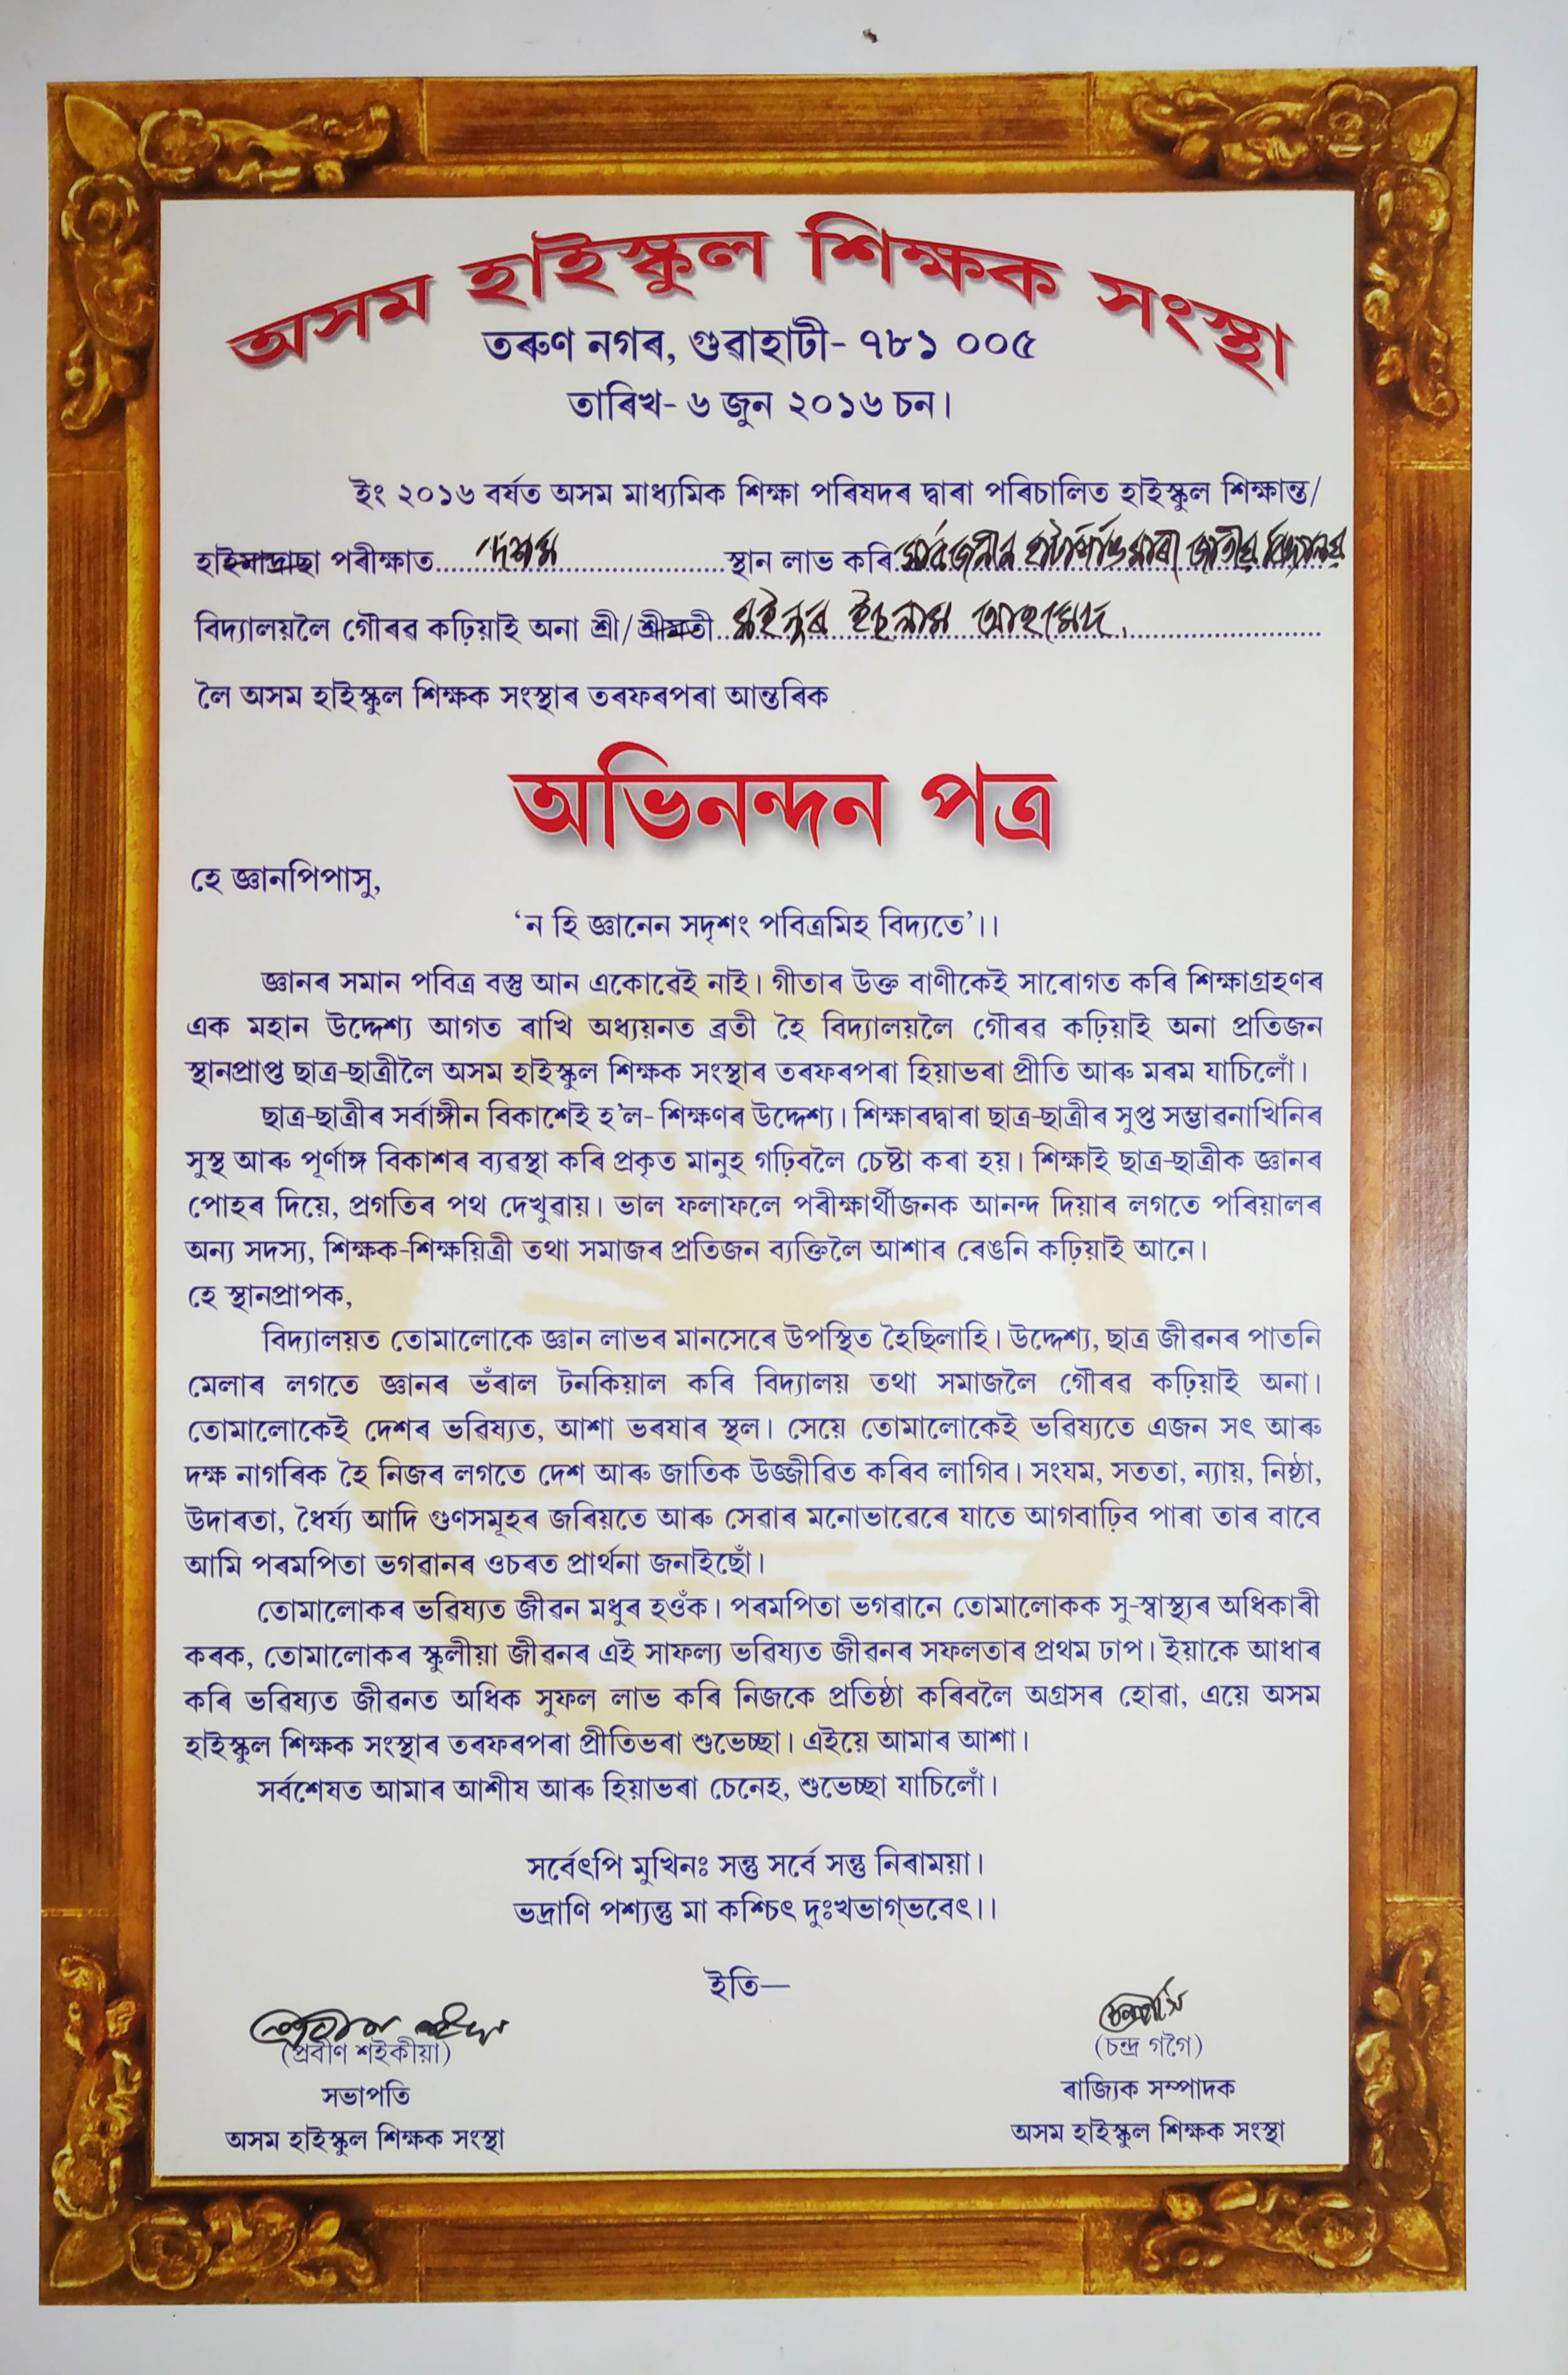 অসম হাইস্কুল শিক্ষক সংস্থা
তৰুণ নগৰ, গুৱাহাটী- ৭৮১ ০০৫
তাৰিখ- ৬ জুন ২০১৬ চন।
ইং ২০১৬ বৰ্ষত অসম মাধ্যমিক শিক্ষা পৰিষদৰ দ্বাৰা পৰিচালিত হাইস্কুল শিক্ষান্ত/
হাইমাদ্ৰাছা পৰীক্ষাত দশম স্থান লাভ কৰি জাতীয় বিদ্যালয়
বিদ্যালয়লৈ গৌৰৱ কঢ়িয়াই অনা শ্ৰী/শ্ৰীমতী মইনুৰ ইছলাম আহমেদ
লৈ অসম হাইস্কুল শিক্ষক সংস্থাৰ তৰফৰপৰা আন্তৰিক
অভিনন্দন পত্ৰ
হে জ্ঞানপিপাসু,
‘ন হি জ্ঞানেন সদৃশং পবিত্ৰমিহ বিদ্যতে’।।
জ্ঞানৰ সমান পবিত্ৰ বস্তু আন একোৱেই নাই। গীতাৰ উক্ত বাণীকেই সাৰোগত কৰি শিক্ষাগ্ৰহণৰ
এক মহান উদ্দেশ্য আগত ৰাখি অধ্যয়নত ব্ৰতী হৈ বিদ্যালয়লৈ গৌৰৱ কঢ়িয়াই অনা প্ৰতিজন
স্থানপ্ৰাপ্ত ছাত্ৰ-ছাত্ৰীলৈ অসম হাইস্কুল শিক্ষক সংস্থাৰ তৰফৰপৰা হিয়াভৰা প্ৰীতি আৰু মৰম যাচিলোঁ।
ছাত্ৰ-ছাত্ৰীৰ সৰ্বাঙ্গীন বিকাশেই হ'ল- শিক্ষণৰ উদ্দেশ্য। শিক্ষাৰদ্বাৰা ছাত্ৰ-ছাত্ৰীৰ সুপ্ত সম্ভাৱনাখিনিৰ
সুস্থ আৰু পূৰ্ণাঙ্গ বিকাশৰ ব্যৱস্থা কৰি প্ৰকৃত মানুহ গঢ়িবলৈ চেষ্টা কৰা হয়। শিক্ষাই ছাত্ৰ-ছাত্ৰীক জ্ঞানৰ
পোহৰ দিয়ে, প্ৰগতিৰ পথ দেখুৱায়। ভাল ফলাফলে পৰীক্ষাৰ্থীজনক আনন্দ দিয়াৰ লগতে পৰিয়ালৰ
অন্য সদস্য, শিক্ষক-শিক্ষয়িত্ৰী তথা সমাজৰ প্ৰতিজন ব্যক্তিলৈ আশাৰ ৰেঙনি কঢ়িয়াই আনে।
হে স্থানপ্ৰাপক,
বিদ্যালয়ত তোমালোকে জ্ঞান লাভৰ মানসেৰে উপস্থিত হৈছিলাহি। উদ্দেশ্য, ছাত্ৰ জীৱনৰ পাতনি
মেলাৰ লগতে জ্ঞানৰ ভঁৰাল টনকিয়াল কৰি বিদ্যালয় তথা সমাজলৈ গৌৰৱ কঢ়িয়াই অনা।
তোমালোকেই দেশৰ ভৱিষ্যত, আশা ভৰষাৰ স্থল। সেয়ে তোমালোকেই ভৱিষ্যতে এজন সৎ আৰু
দক্ষ নাগৰিক হৈ নিজৰ লগতে দেশ আৰু জাতিক উজ্জীৱিত কৰিব লাগিব। সংযম, সততা, ন্যায়, নিষ্ঠা,
উদাৰতা, ধৈৰ্য্য আদি গুণসমূহৰ জৰিয়তে আৰু সেৱাৰ মনোভাৱেৰে যাতে আগবাঢ়িব পাৰা তাৰ বাবে
আমি পৰমপিতা ভগৱানৰ ওচৰত প্ৰাৰ্থনা জনাইছোঁ।
তোমালোকৰ ভৱিষ্যত জীৱন মধুৰ হওঁক। পৰমপিতা ভগৱানে তোমালোকক সু-স্বাস্থ্যৰ অধিকাৰী
কৰক, তোমালোকৰ স্কুলীয়া জীৱনৰ এই সাফল্য ভৱিষ্যত জীৱনৰ সফলতাৰ প্ৰথম ঢাপ। ইয়াকে আধাৰ
কৰি ভৱিষ্যত জীৱনত অধিক সুফল লাভ কৰি নিজকে প্ৰতিষ্ঠা কৰিবলৈ অগ্ৰসৰ হোৱা, এয়ে অসম
হাইস্কুল শিক্ষক সংস্থাৰ তৰফৰপৰা প্ৰীতিভৰা শুভেচ্ছা। এইয়ে আমাৰ আশা।
সৰ্বশেষত আমাৰ আশীষ আৰু হিয়াভৰা চেনেহ, শুভেচ্ছা যাচিলোঁ।
সৰ্বেৎপি মুখিনঃ সন্তু সৰ্বে সন্তু নিৰাময়া।
ভদ্ৰাণি পশ্যন্তু মা কশ্চিৎ দুঃখভাগ্‌ভবেৎ।।
ইতি—
(প্ৰবীণ শইকীয়া)
সভাপতি
অসম হাইস্কুল শিক্ষক সংস্থা
(চন্দ্ৰ গগৈ)
ৰাজ্যিক সম্পাদক
অসম হাইস্কুল শিক্ষক সংস্থা